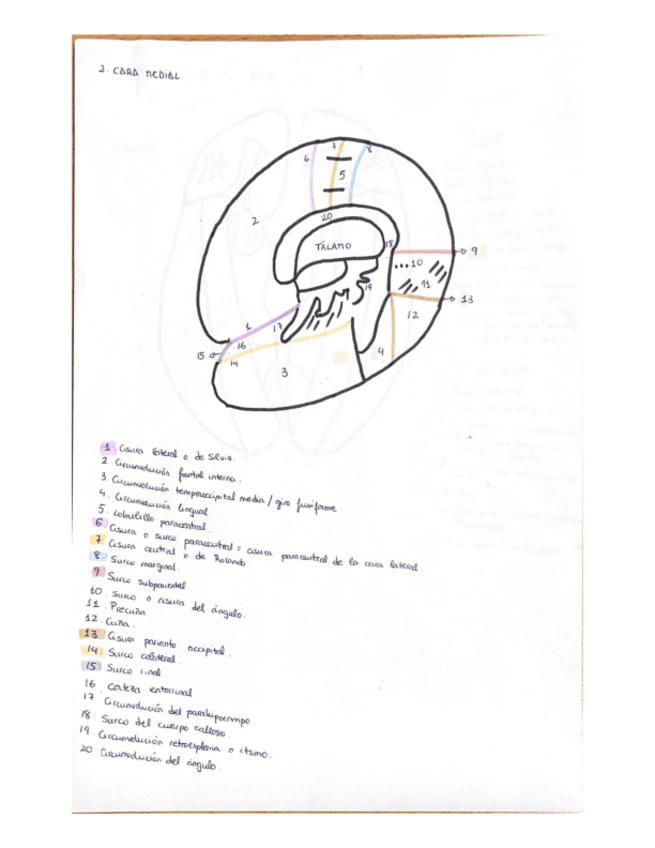 3. CARA MEDIAL.
6 7 8
5
2 20
TÁLAMO 18 → 9
...10
19 11
→ 13
1 17 12
15 ← 16
14 3 4
1 Cisura lateral o de Silvio.
2 Circunvolución frontal interna.
3. Circunvolución temporooccipital media / giro fusiforme.
4. Circunvolución lingual.
5. Lobulillo paracentral.
6 Cisura o surco paracentral = cisura paracentral de la cara lateral.
7 Cisura central o de Rolando
8. Surco marginal.
9 Surco subparietal.
10. Surco o cisura del ángulo.
11. Precuña
12. Cuña.
13 Cisura parieto occipital.
14. Surco colateral.
15 Surco rinal
16 Corteza entorrinal
17 Circunvolución del parahipocampo.
18. Surco del cuerpo calloso.
19. Circunvolución retroesplenia o itsmo.
20 Circunvolución del ángulo.